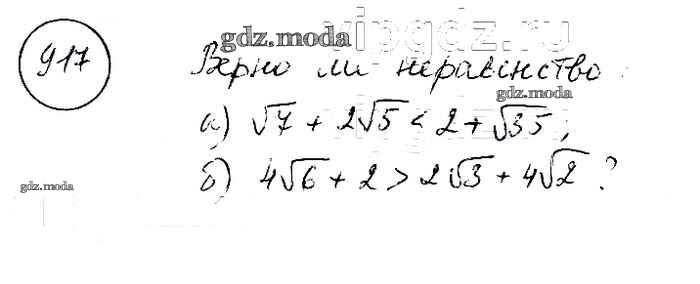 vipgdz.ru
gdz.moda
917 Верно ли неравенство:
gdz.moda
а) √7 + 2√5 < 2 + √35;
vipgdz.ru
gdz.moda
б) 4√6 + 2 > 2√3 + 4√2 ?